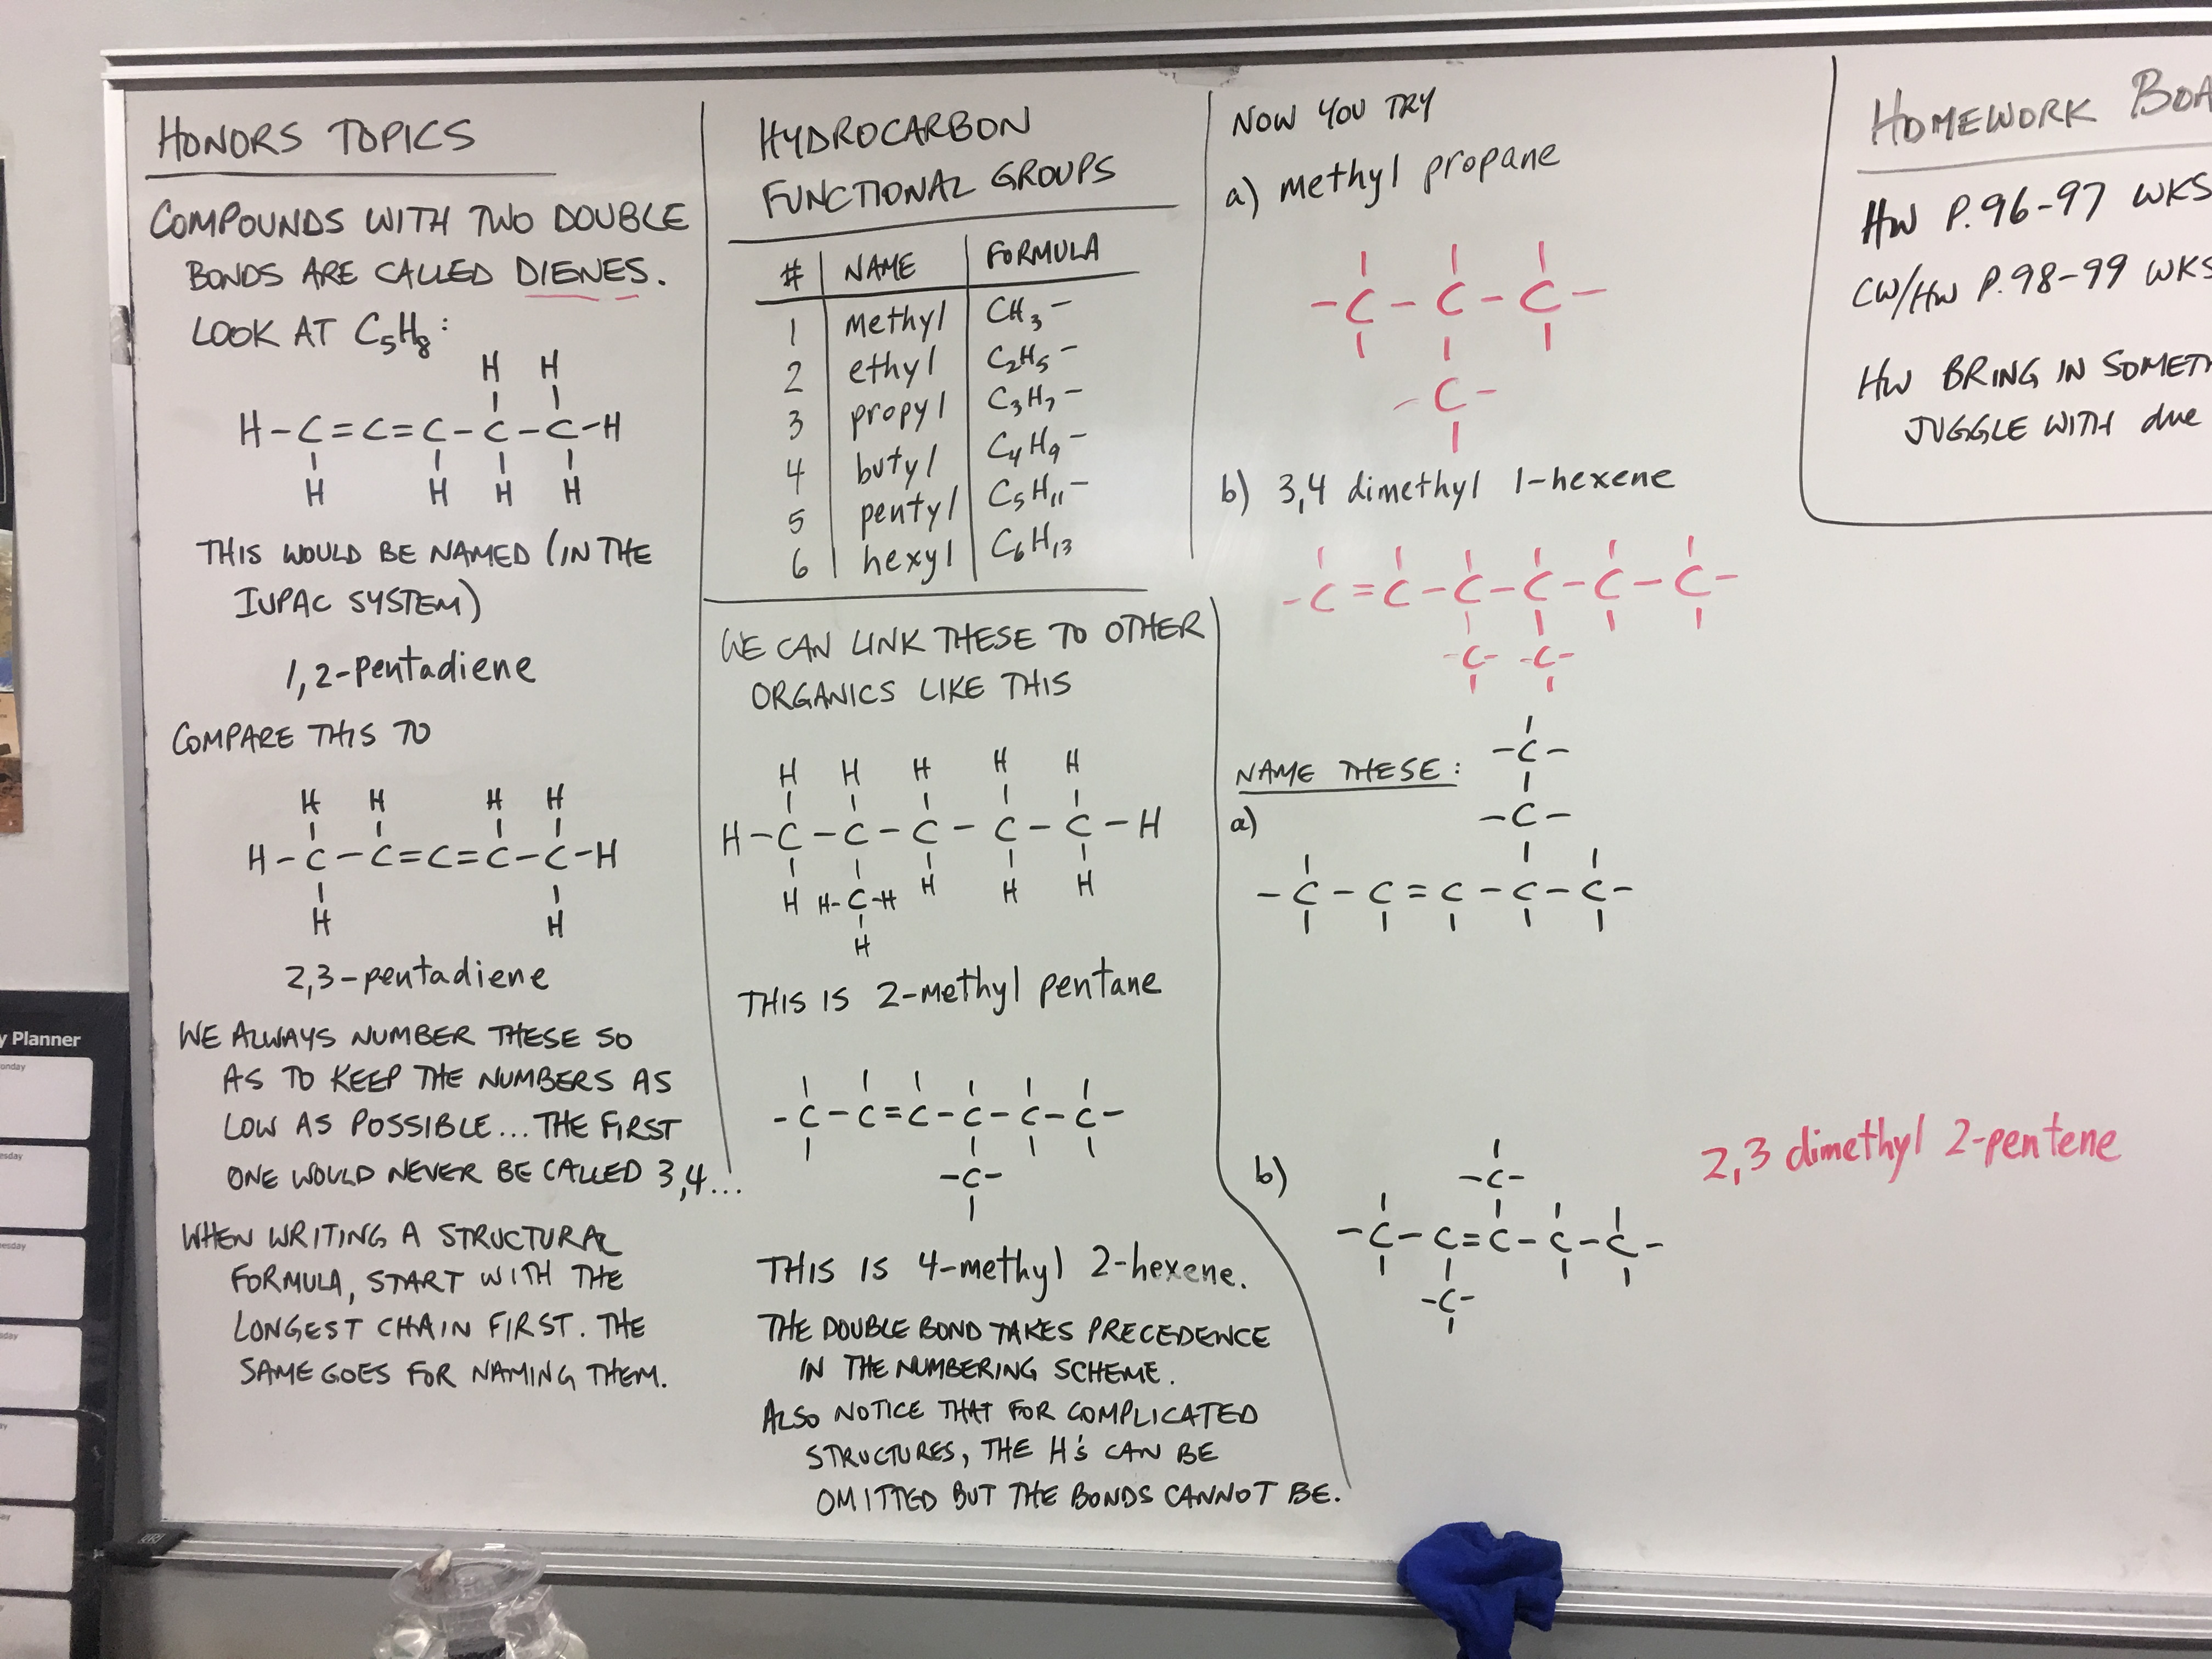 HONORS TOPICS
COMPOUNDS WITH TWO DOUBLE
BONDS ARE CALLED DIENES.
LOOK AT C5H8:
H H
H-C=C=C-C-C-H
H H H H
THIS WOULD BE NAMED (IN THE
IUPAC SYSTEM)
1,2-pentadiene
COMPARE THIS TO
H H H H
H-C-C=C=C-C-H
H H
2,3-pentadiene
WE ALWAYS NUMBER THESE SO
AS TO KEEP THE NUMBERS AS
LOW AS POSSIBLE... THE FIRST
ONE WOULD NEVER BE CALLED 3,4...
WHEN WRITING A STRUCTURAL
FORMULA, START WITH THE
LONGEST CHAIN FIRST. THE
SAME GOES FOR NAMING THEM.
HYDROCARBON
FUNCTIONAL GROUPS
# NAME FORMULA
1 methyl CH3-
2 ethyl C2H5-
3 propyl C3H7-
4 butyl C4H9-
5 pentyl C5H11-
6 hexyl C6H13
WE CAN LINK THESE TO OTHER
ORGANICS LIKE THIS
H H H H H
H-C-C-C-C-C-H
H H-C-H H H H
H
THIS IS 2-methyl pentane
-C-C=C-C-C-C-
-C-
THIS IS 4-methyl 2-hexene.
THE DOUBLE BOND TAKES PRECEDENCE
IN THE NUMBERING SCHEME.
ALSO NOTICE THAT FOR COMPLICATED
STRUCTURES, THE H's CAN BE
OMITTED BUT THE BONDS CANNOT BE.
NOW YOU TRY
a) methyl propane
-C-C-C-
-C-
b) 3,4 dimethyl 1-hexene
-C=C-C-C-C-C-
-C- -C-
NAME THESE:
a)
-C-
-C-
-C-C=C-C-C-
b)
-C-
-C-C=C-C-C-
-C-
2,3 dimethyl 2-pentene
HOMEWORK
HW P.96-97 WKS
CW/HW P.98-99 WKS
HW BRING IN
JUGGLE WITH due
y Planner